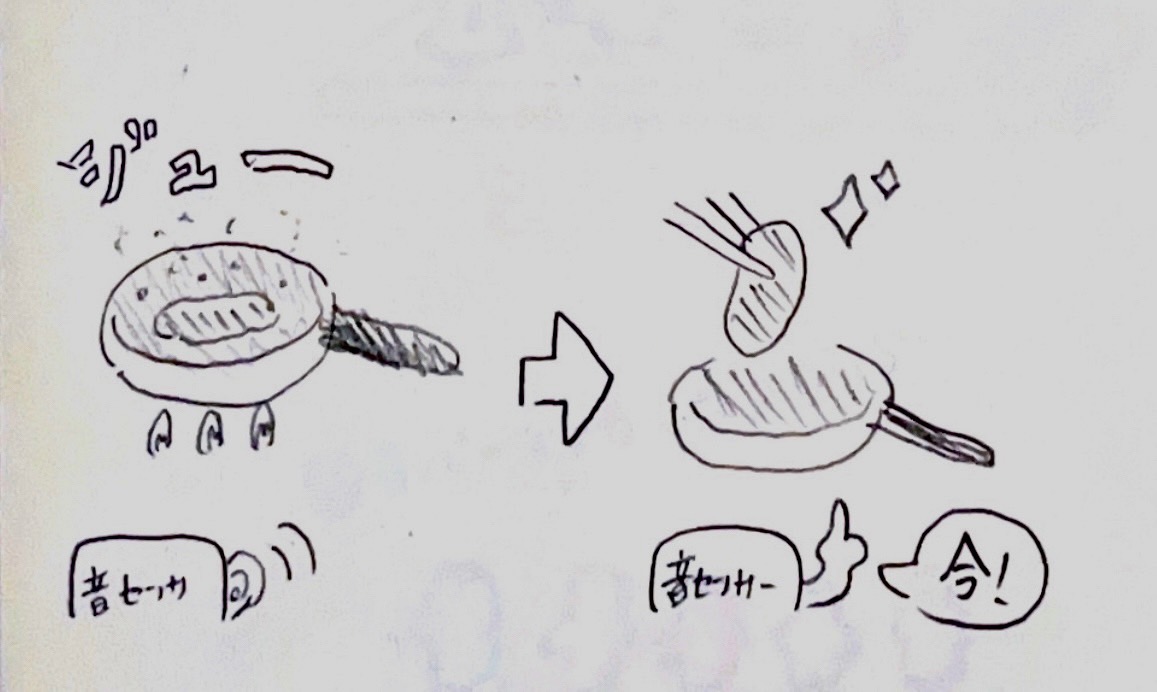 ジュー
音センサ
音センサー
今!